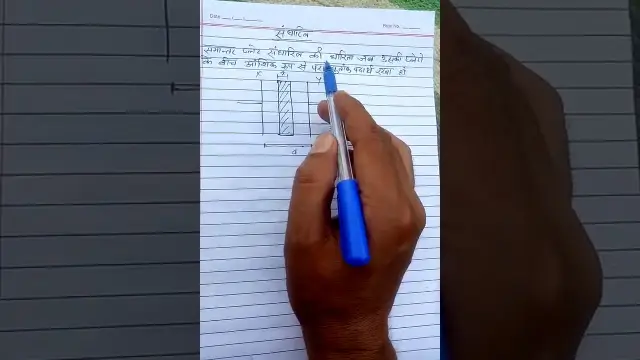 Date
Page No.
संधारित्र
समान्तर प्लेट संधारित्र की धारिता जब उसकी प्लेटों
के बीच आंशिक रूप से परावैद्युतांक पदार्थ रखा हो
X t Y
d